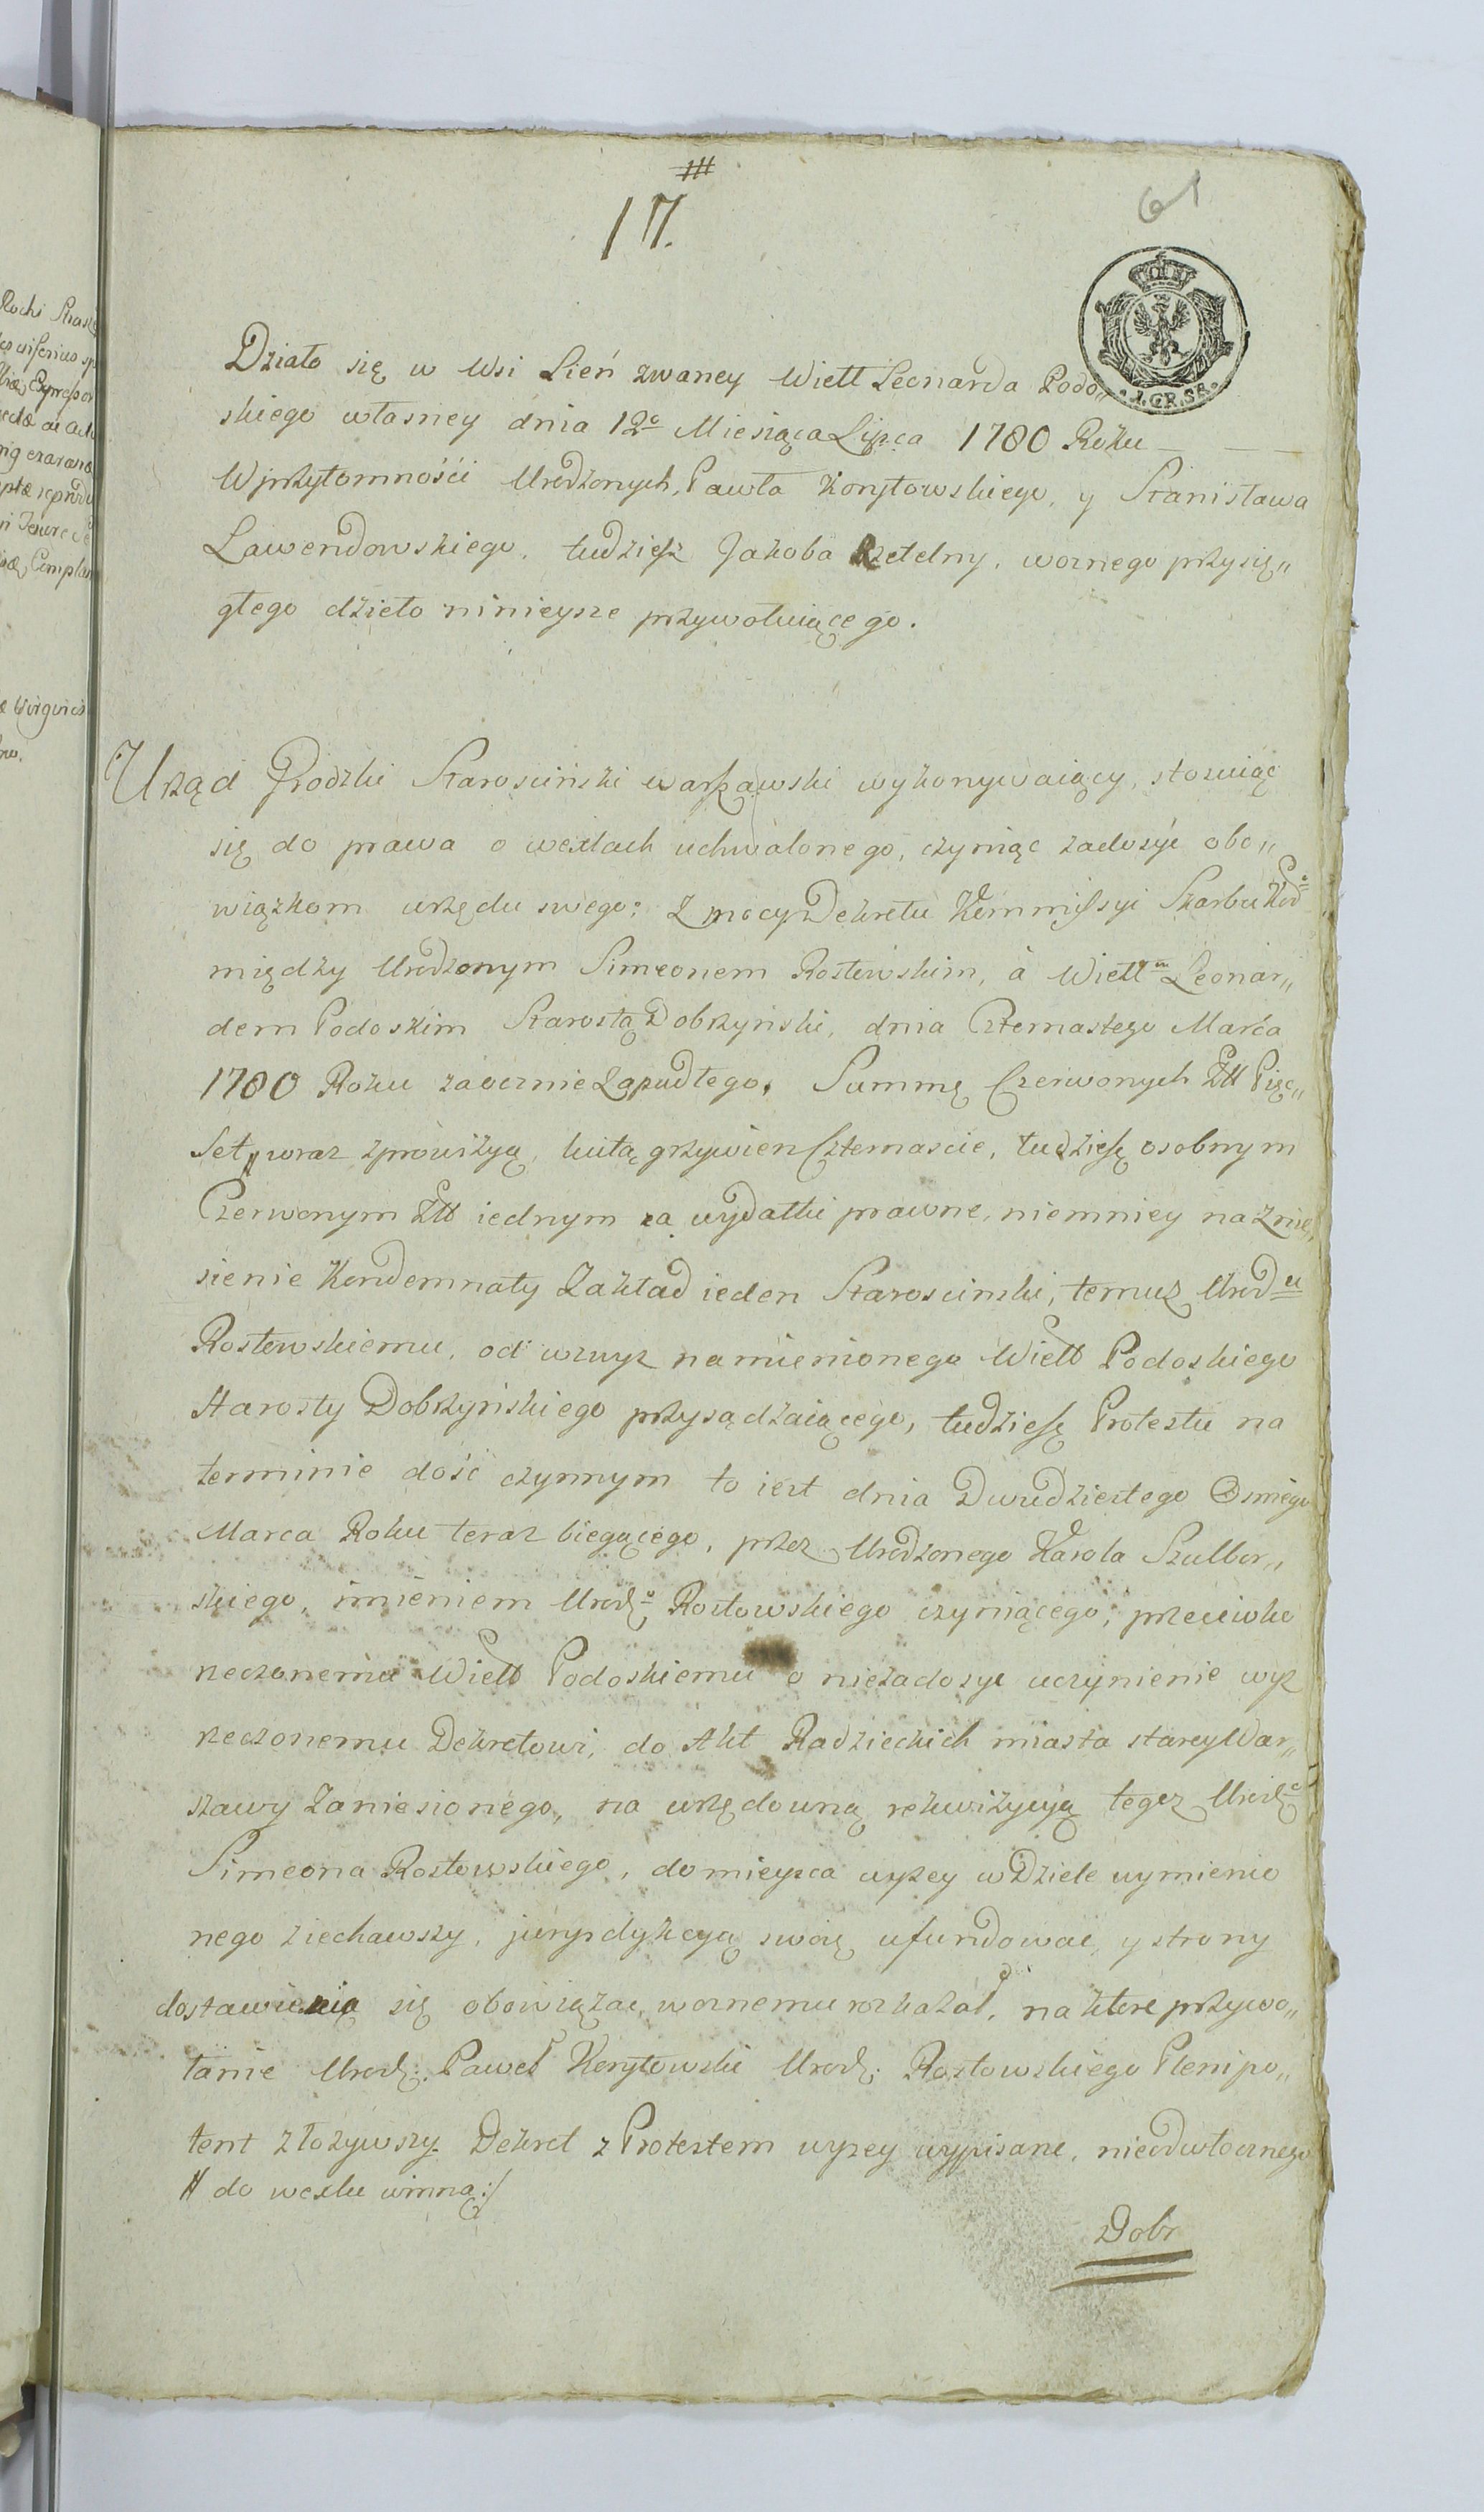 61
17.
1.GR.SR.
Działo się w Wsi Sień zwaney Wiell Leonarda Podo„
skiego własney dnia 12º Miesiąca Lipca 1780 Roku
W przytomności Urodzonych, Pawła Korytowskiego, y Stanisława
Lawendowskiego, tudziesz Jakoba Rzetelny, woznego przysię„
głego dzieło ninieysze przywołuiącego.
Urząd Grodzki Starosciński warszawski wykonywaiący, stosuiąc
się do prawa o wexlach uchwalonego, czyniąc zadosyć obo„
wiązkom urzędu swego; Z mocy Dekretu Kommissyi Skarbu Kor̃
między Urodzonym Simeonem Rostowskim, à Wiellm Leonar„
dem Podoskim Starostą Dobrzyński, dnia Czternastego Marca
1780 Roku zaocznie Zapadłego, Summę Czerwonych Złł Pięć„
Set, wraz z prowizyą, lutą grzywien Czternascie, tudziesz osobnym
Czerwonym Złł iednym za wydatki prawne, niemniey na znie„
sienie Kondemnaty Zakład ieden Starosciński, temuz Urodu
Rostowskiemu, od wzwyz namienionego Wiell Podoskiego
Starosty Dobrzyńskiego przysądzaiącego, tudziesz Protestu na
terminie dość czynnym to iest dnia Dwudziestego Osmego
Marca Roku teraz biegącego, przez Urodzonego Karola Szulbor„
skiego, imieniem Urodº Rostowskiego czyniącego, przeciwko
rzeczonemu Wiell Podoskiemu o niezadosyć uczynienie wyz
rzeczonemu Dekretowi, do Akt Radzieckich miasta starey War„
szawy Zaniesionego, na urzędowną rekwizycyą tegoz Urodº
Simeona Rostowskiego, do mieysca wyzey w Dziele wymienio
nego ziechawszy, jurysdykcyą swoię ufundować, y strony
dostawienia się obowiązać, woznemu rozkazał, na które przywo„
łanie Urodz: Paweł Korytowski Urodz: Rostowskiego Plenipo„
tent złożywszy Dekret z Protestem wyzey wypisane, nieodwłocznego
# do wexlu winną:/
Dobr